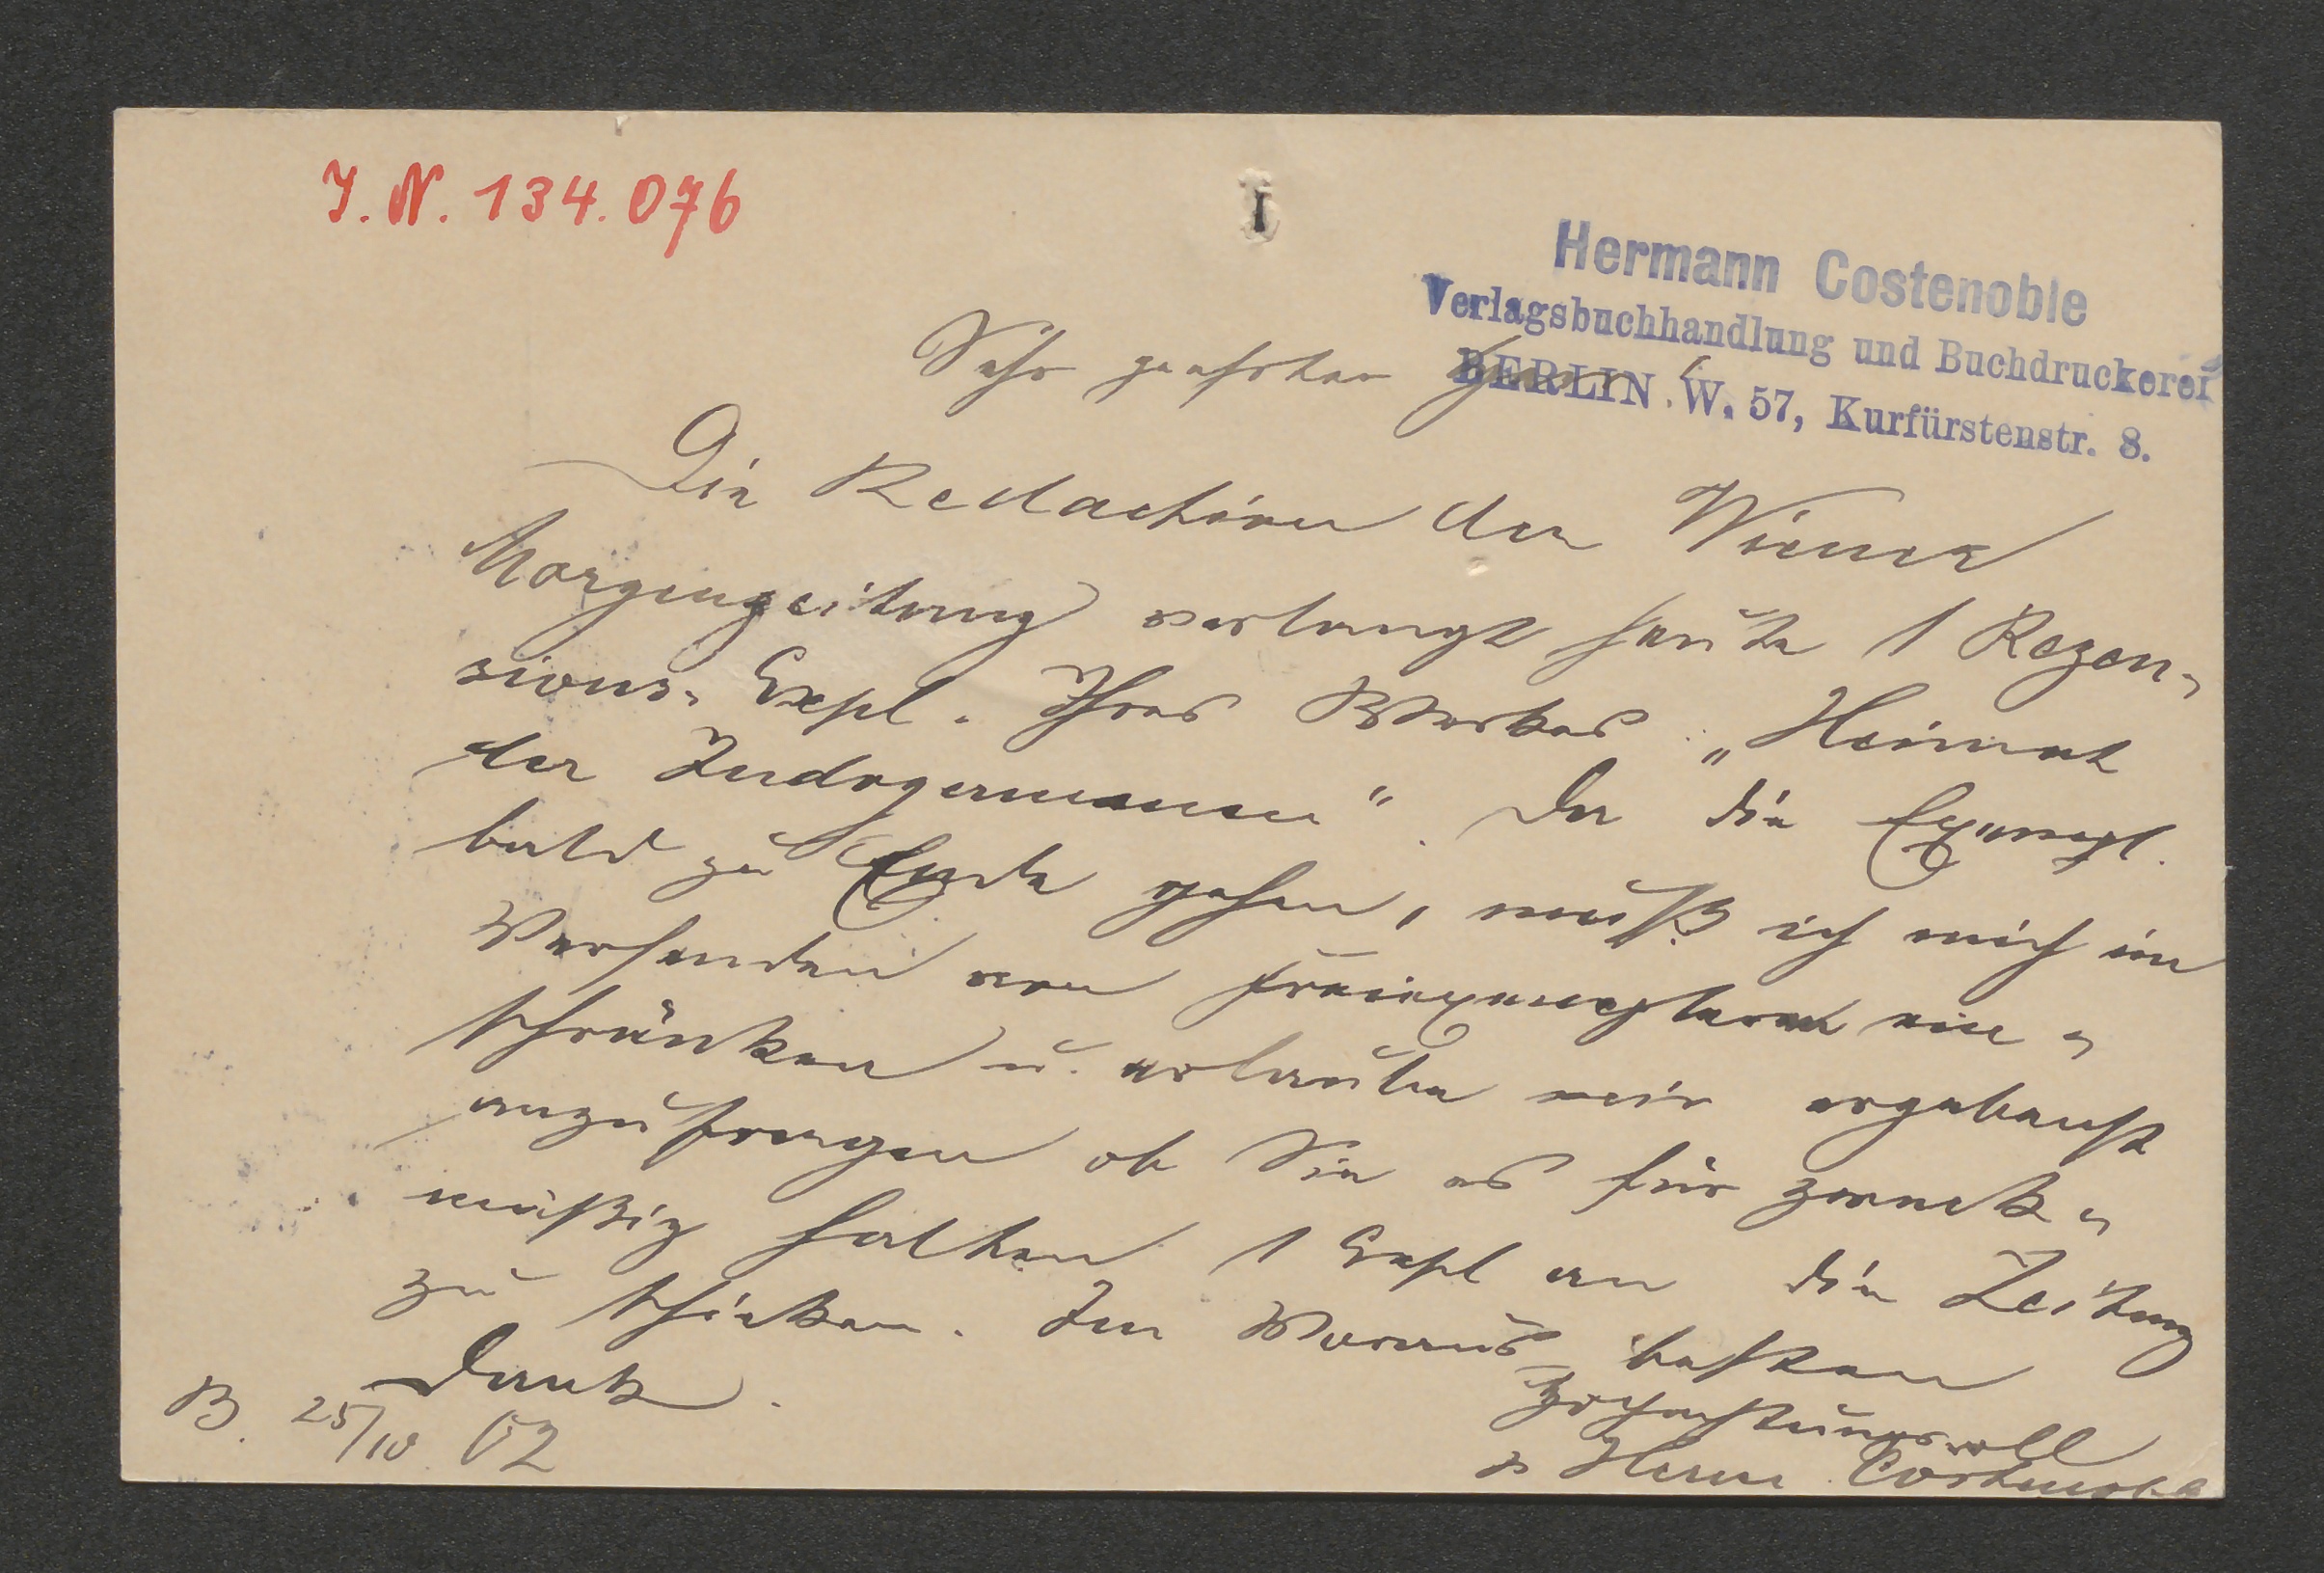 I. N. 134.076
Hermann Costenoble
Verlagsbuchhandlung und Buchdruckerei
BERLIN W. 57, Kurfürstenstr. 8.
Sehr geehrter Herr!
Die Redaction der Wiener
Morgenzeitung verlangt heute 1 Rezen-
sions-Expl. Ihres Werkes „Heimat
der Indogermanen". Da die Exempl.
bald zu Ende gehen, muß ich mich im
Versenden von Freiexemplaren ein-
schränken u. erlaube mir ergebenst
anzufragen ob Sie es für zweck-
mäßig halten 1 Expl an die Zeitung
zu schicken. Im Voraus besten
Dank.
Hochachtungsvoll
B. 25/10 02
p Herm. Costenoble